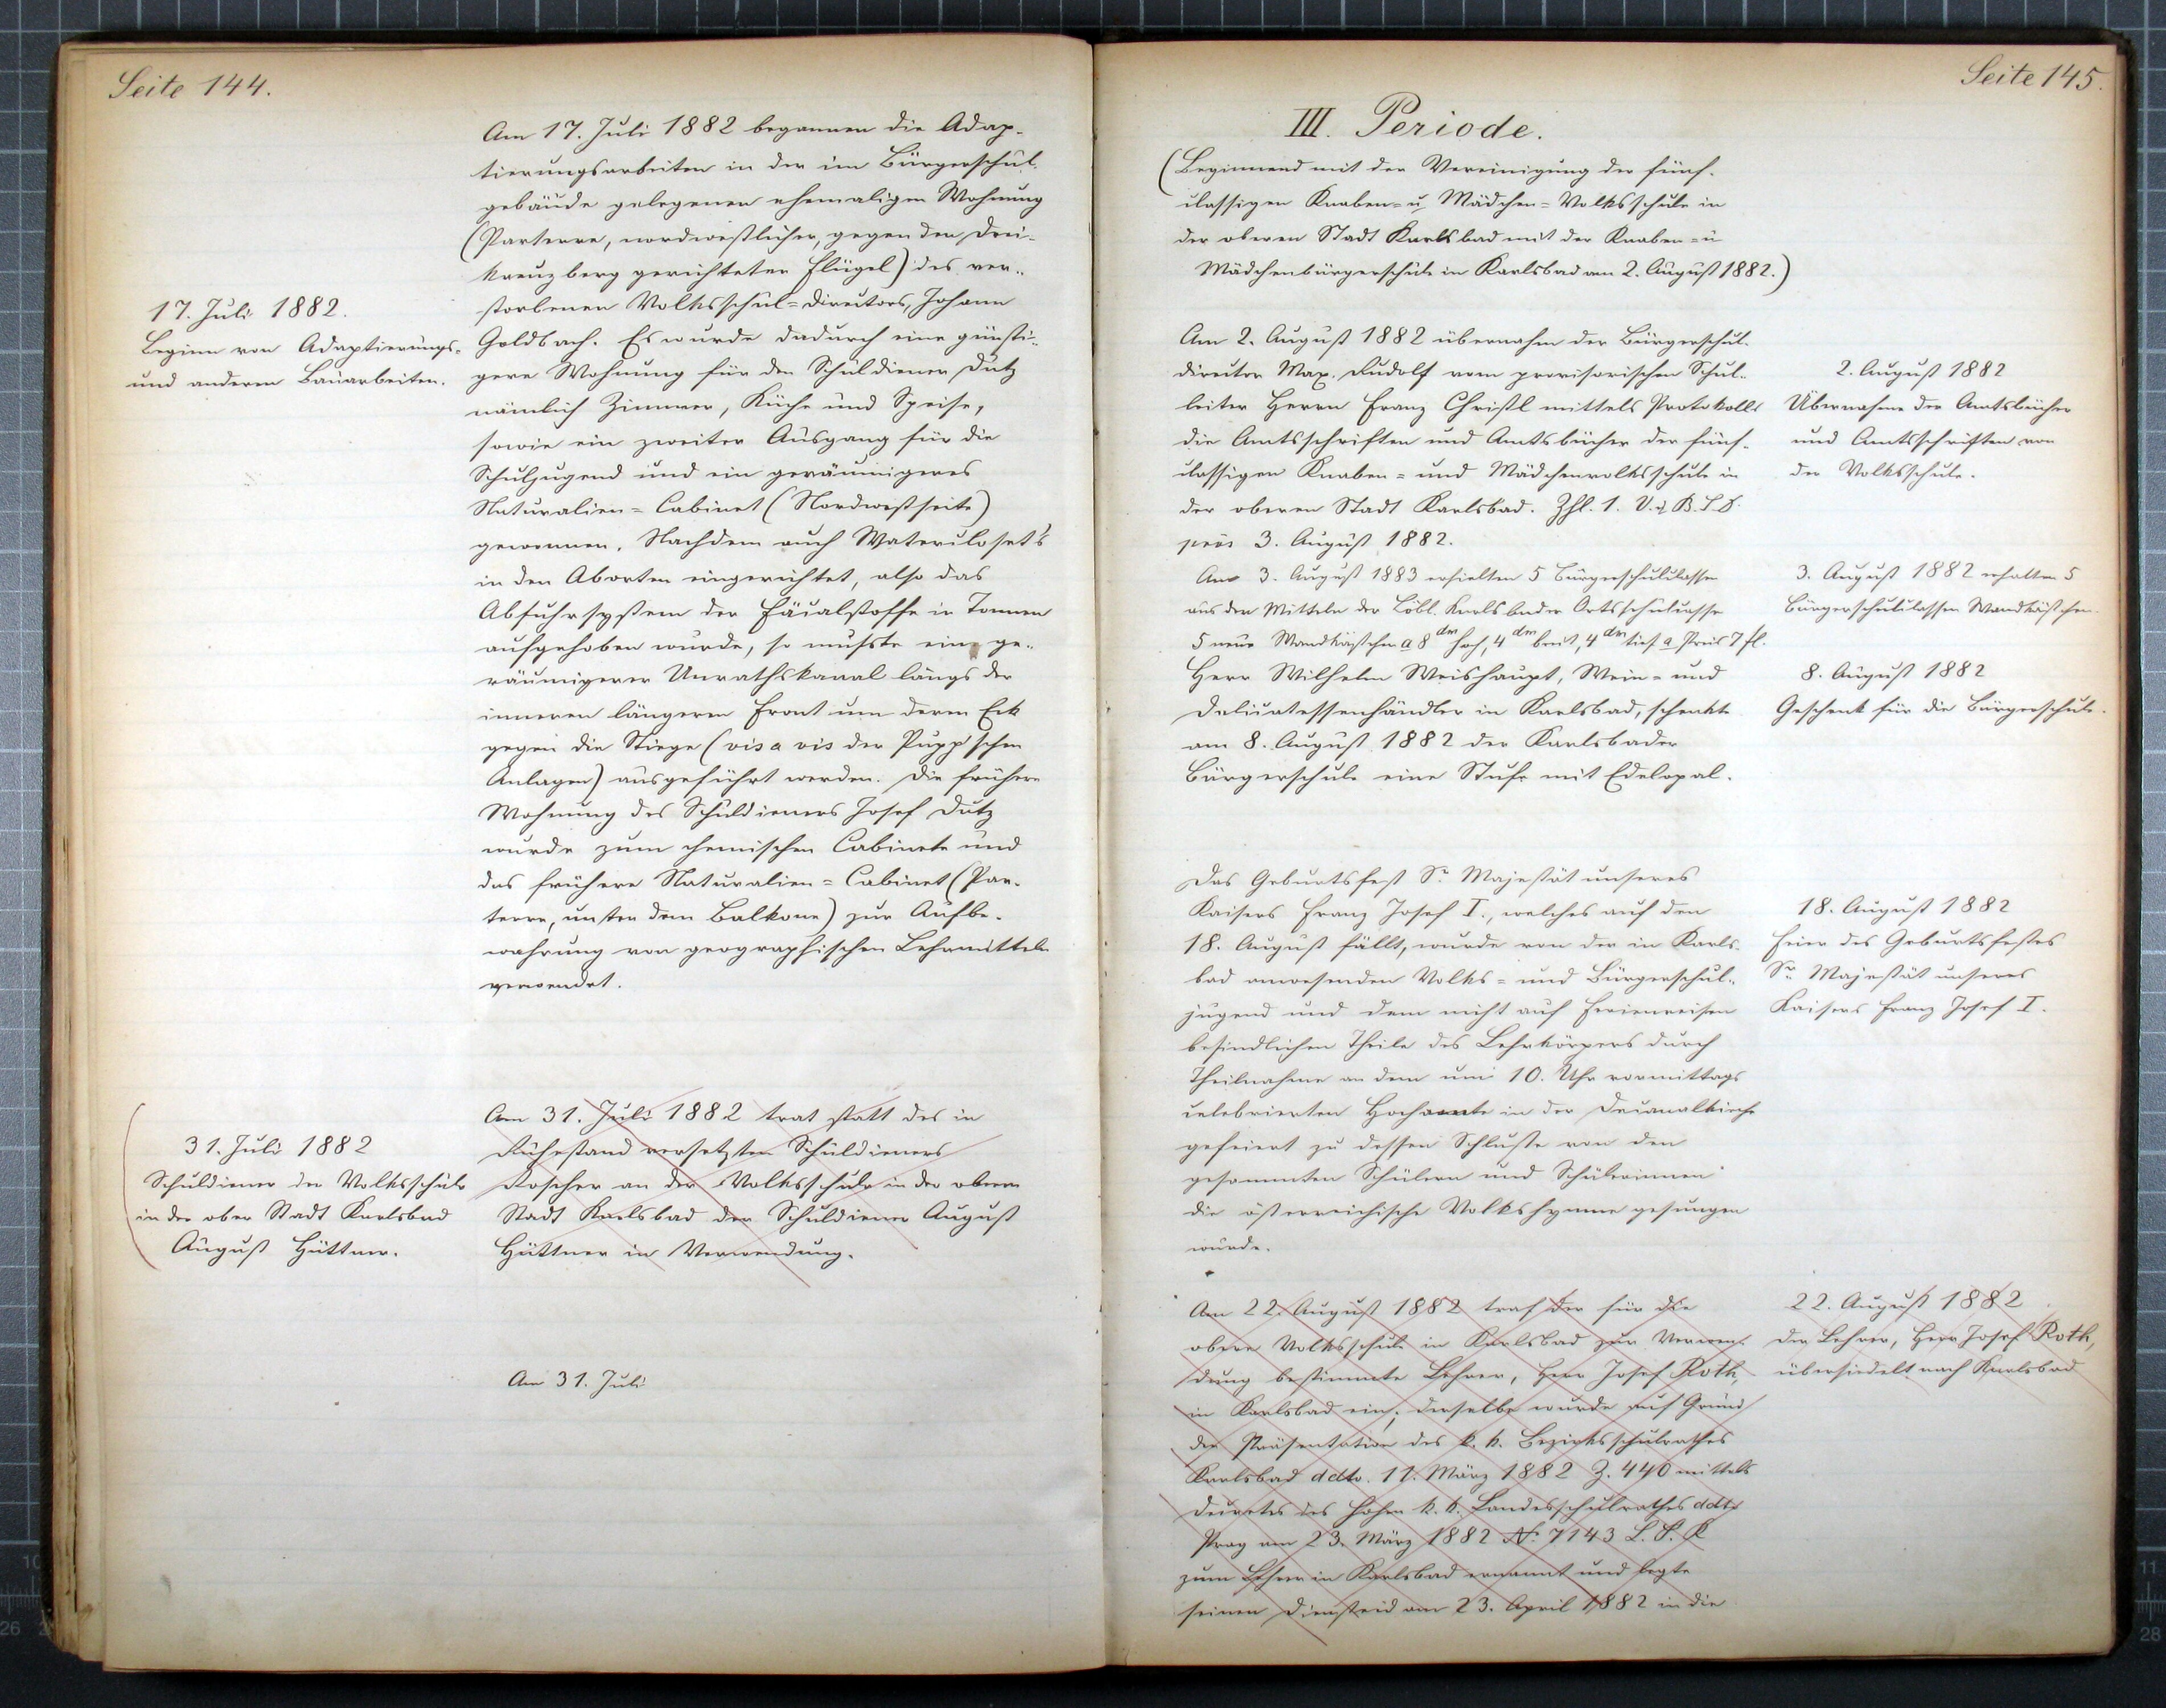 Seite 144.
Am 17. Juli 1882 begannen die Adap-
tierungsarbeiten in der im Bürgerschul-
gebäude gelegenen ehemaligen Wohnung
(Parterre, nordwestlicher, gegen den Drei-
kreuzberg gerichteter Flügel) des ver-
storbenen Volksschul-Directors, Johann
Goldbach. Es wurde dadurch eine günsti-
gere Wohnung für den Schuldiener Dutz
nämlich Zimmer, Küche und Speise,
sowie ein zweiter Ausgang für die
Schuljugend und ein geräumigeres
Naturalien-Cabinet (Nordwestseite)
gewonnen. Nachdem auch Watercloset's
in den Aborten eingerichtet, also das
Abfuhrsystem der Fäcalstoffe in Tonnen
aufgehoben wurde, so mußte ein ge-
räumigerer Unrathskanal längs der
inneren längeren Front um deren Eck
gegen die Stiege (vis a vis der Pupp'schen
Anlagen) ausgeführt werden. Die frühere
Wohnung des Schuldieners Josef Dutz
wurde zum chemischen Cabinete und
das frühere Naturalien-Cabinet (Par-
terre, unter dem Balkone) zur Aufbe-
wahrung von geographischen Lehrmitteln
verwendet.
17. Juli 1882.
Beginn von Adaptierungs-
und anderen Bauarbeiten.
Am 31. Juli 1882 trat statt des in
Ruhestand versetzten Schuldieners
Roscher an der Volksschule in der oberen
Stadt Karlsbad der Schuldiener August
Hüttner in Verwendung.
31. Juli 1882
Schuldiener der Volksschule
in der ober Stadt Karlsbad
August Hüttner.
Am 31. Juli
Seite 145.
III. Periode.
(Beginnend mit der Vereinigung der fünf-
classigen Knaben- u. Mädchen-Volksschule in
der oberen Stadt Karlsbad mit der Knaben- u
Mädchenbürgerschule in Karlsbad am 2. August 1882.)
Am 2. August 1882 übernahm der Bürgerschul-
director Max. Rudolf vom provisorischen Schul-
leiter Herrn Franz Christl mittels Protokolls
die Amtsschriften und Amtsbücher der fünf-
classigen Knaben- und Mädchenvolksschule in
der oberen Stadt Karlsbad. Zhl. 1. V. u. B.
präs 3. August 1882.
2. August 1882
Übernahme der Amtsbücher
und Amtsschriften von
der Volksschule.
Am 3. August 1883 erhielten 5 Bürgerschulclassen
aus den Mitteln der Löbl. Karlsbader Ortsschulcasse
5 neue Wandkästchen a 8 dm hoch, 4 dm breit, 4 dm tief a Preis 7 fl.
3. August 1882 erhalten 5
Bürgerschulclassen Wandkästchen.
Herr Wilhelm Weishaupt, Wein- und
Delicatessenhändler in Karlsbad, schenkte
am 8. August 1882 der Karlsbader
Bürgerschule eine Stufe mit Edelopal.
8. August 1882
Geschenk für die Bürgerschule.
Das Geburtsfest Sr. Majestät unseres
Kaisers Franz Josef I., welches auf den
18. August fällt, wurde von der in Karls-
bad anwesenden Volks- und Bürgerschul-
jugend und dem nicht auf Ferienreisen
befindlichen Theile des Lehrkörpers durch
Theilnahme an dem um 10. Uhr vormittags
celebrierten Hochamte in der Decanalkirche
gefeiert zu dessen Schluße von den
gesammten Schülern und Schülerinnen
die österreichische Volkshymne gesungen
wurde.
18. August 1882
Feier des Geburtsfestes
Sr. Majestät unseres
Kaisers Franz Josef I.
Am 22. August 1882 traf der für die
obere Volksschule in Karlsbad zur Verwen-
dung bestimmte Lehrer, Herr Josef Roth,
in Karlsbad ein; derselbe wurde auf Grund
der Präsentation des k. k. Bezirksschulrathes
Karlsbad ddto. 11. März 1882 Z. 440 mittels
Decretes des hohen k. k. Landesschulrathes ddto
Prag am 23. März 1882 No. 7143 L. S. R
zum Lehrer in Karlsbad ernannt und legte
seinen Diensteid am 23. April 1882 in die
22. August 1882
Der Lehrer, Herr Josef Roth,
übersiedelt nach Karlsbad